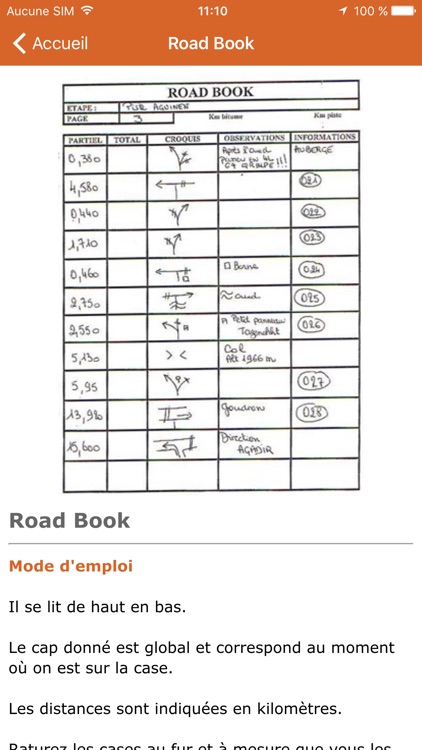 Aucune SIM 11:10 100 %
Accueil Road Book
ROAD BOOK
ETAPE:
PAGE 3 Km bitume Km piste
PARTIEL TOTAL CROQUIS OBSERVATIONS INFORMATIONS
0,380 Après Oued AUBERGE
4,580 021
0,440 022
1,710 023
0,460 Borne 024
2,750 oued 025
2,550 Petit panneau 026
5,130 Col
Alt 1966 m
5,95 027
13,920 goudron 028
15,600 Direction
AGADIR
Road Book
Mode d'emploi
Il se lit de haut en bas.
Le cap donné est global et correspond au moment
où on est sur la case.
Les distances sont indiquées en kilomètres.
Raturez les cases au fur et à mesure que vous les